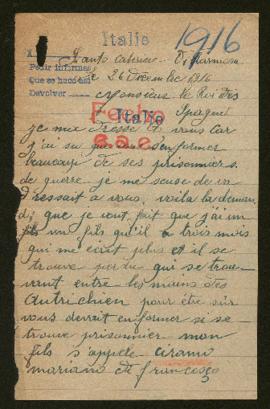 Italie
1916
Santo Caterina Villarmosa
Pedir informes
Que se haco así
Devolver
le 26 Decembre 1916
Monsieur le Roi des
Spagne
Fecho
Italie
je me dresse à vous car
j'ai su que vous enformer
beaucoup de ses prisonniers
de guerre je me scuse de va
dressait a vous, voila la deman
di, que je vout fait que j'ai un
fils un fils qu'il a trois mois
qui me écrit plus et il se
trouve perdu qui se trou
vant entre les mains des
Autrichien pour être sûr
vous devrait enformer si se
trouve prisonnier mon
fils s'appele
mariano de francesco